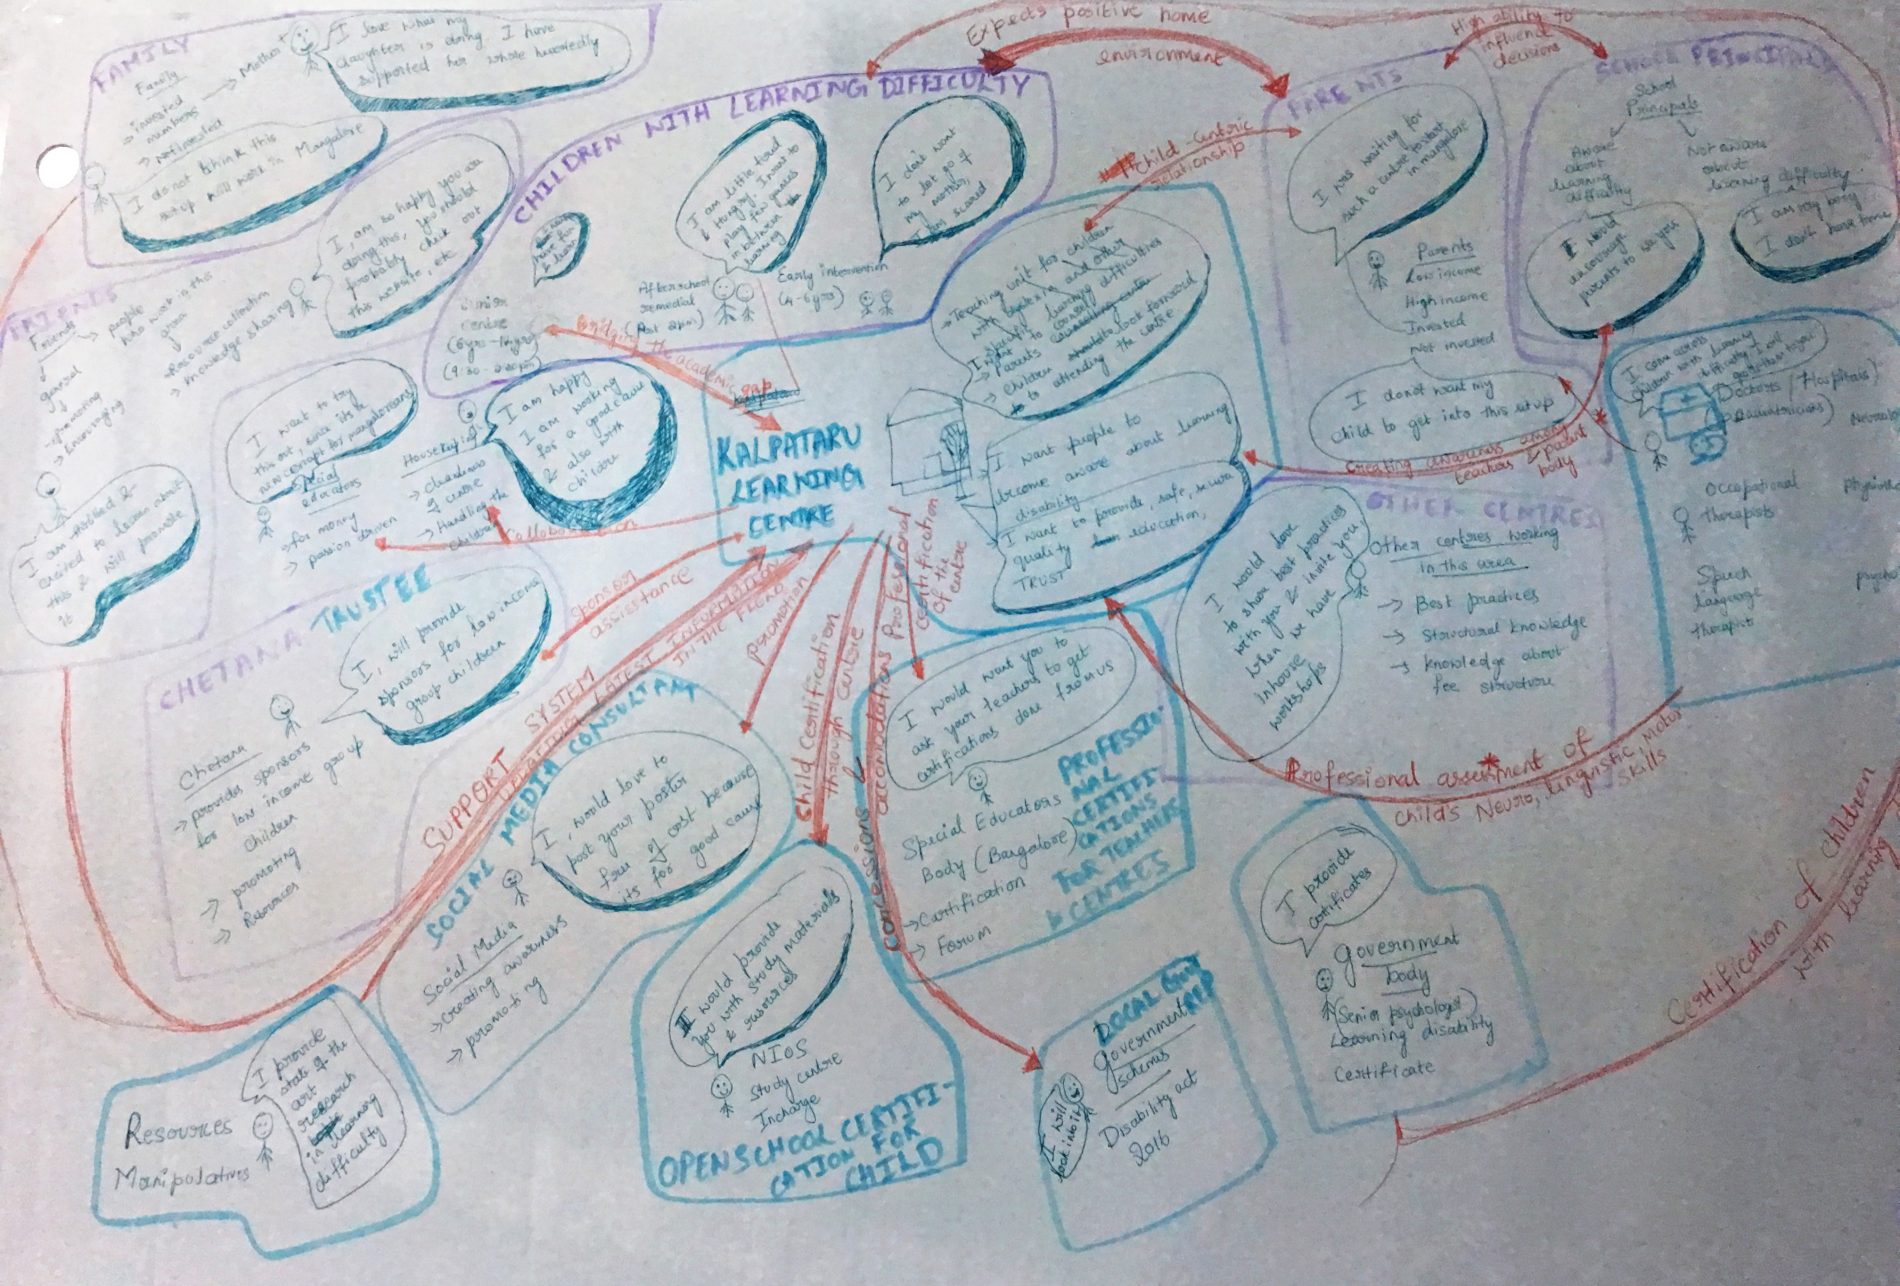 FAMILY
Family
→ invested
members
→ Not invested
→ Mother
I love what my
daughter is doing, I have
supported her whole heartedly
I do not think this
setup will work in Mangalore
I, am so happy you are
doing this, You should
probably check out
this website, etc
FRIENDS
Friends
→ people
who work in this
area
→ Resource collection
→ Knowledge sharing
general
→ promoting
→ Encouraging
I am thrilled &
excited to learn about
this & will promote
it
CHILDREN WITH LEARNING DIFFICULTY
I am little tired
& Hungry. I want to
play few games
in between
learning
I don't want
to let go of
my mother,
I am scared
Centre
(9:30 - 2:00pm)
Afterschool
remedial
(Post 2pm)
Early intervention
(4-6yrs)
Expects positive home
environment
High ability to
influence
decisions
Child-centric
relationship
PARENTS
I was waiting for
such a centre to start
in mangalore
Parents
Low income
High income
Invested
Not invested
I do not want my
child to get into this setup
SCHOOL PRINCIPALS
School
Principals
Aware
about
learning
difficulty
Not aware
about
learning difficulty
I would
encourage
parents to see you
I am very busy
I don't have time
I come across
children with learning
difficulty I will
Doctors (Hospitals)
Occupational
therapists
Speech
language
therapist
Bridging the academic
gap
I want to try
this out, since it is
new concept for mangaloreans
Special
educators
→ for money
→ passion driven
Housekeeping
→ cleanliness
of centre
→ Handling the
children
I am happy
I am working
for a good cause
& also with
children
Collaboration
KALPATARU
LEARNING
CENTRE
→ Teaching unit for children
with dyslexia and other
specific learning difficulties
→ Parents
→ Children should look forward
to attending the centre
I want people to
become aware about learning
disability
I want to provide, safe, secure
quality education,
TRUST
Creating awareness among
teachers & parent
body
OTHER CENTRES
Other centres working
in this area
→ Best practices
→ Structural knowledge
→ knowledge about
fee structure
I would love
to share best practices
with you & invite you
when we have
Inhouse
workshops
CHETANA TRUSTEE
I, will provide
sponsors for low income
group children
Chetana
→ provides sponsors
for low income group
children
→ promoting
→ Resources
sponsor
assistance
SUPPORT SYSTEM
UPDATING LATEST INFORMATION
IN THE FIELD
promotion
Child Certification
through centre
Concessions &
accomodations
Professional
certification
of the
centre
SOCIAL MEDIA CONSULTANT
I, would love to
post your poster
free of cost because
its for good cause
Social Media
→ Creating awareness
→ promoting
I would want you to
ask your teachers to get
certifications done from us
Special Educators
Body (Bangalore)
→ Certification
→ Forum
PROFESSIO-
NAL
CERTIFI-
CATIONS
FOR TEACHERS
& CENTRES
Professional assesment of
child's Neuro, linguistic, Motor
skills
I would provide
you with study materials
& resources
NIOS
Study centre
Incharge
OPEN SCHOOL CERTIFI-
CATION FOR
CHILD
LOCAL GOVT
REP
Government
schemes
Disability act
2016
I will
look into it
I provide
certificates
Government
body
(Senior psychologist)
Learning disability
certificate
Certification of children
with learning
Resources
Manipulatives
I provide
state of the
art
research
in learning
difficulty